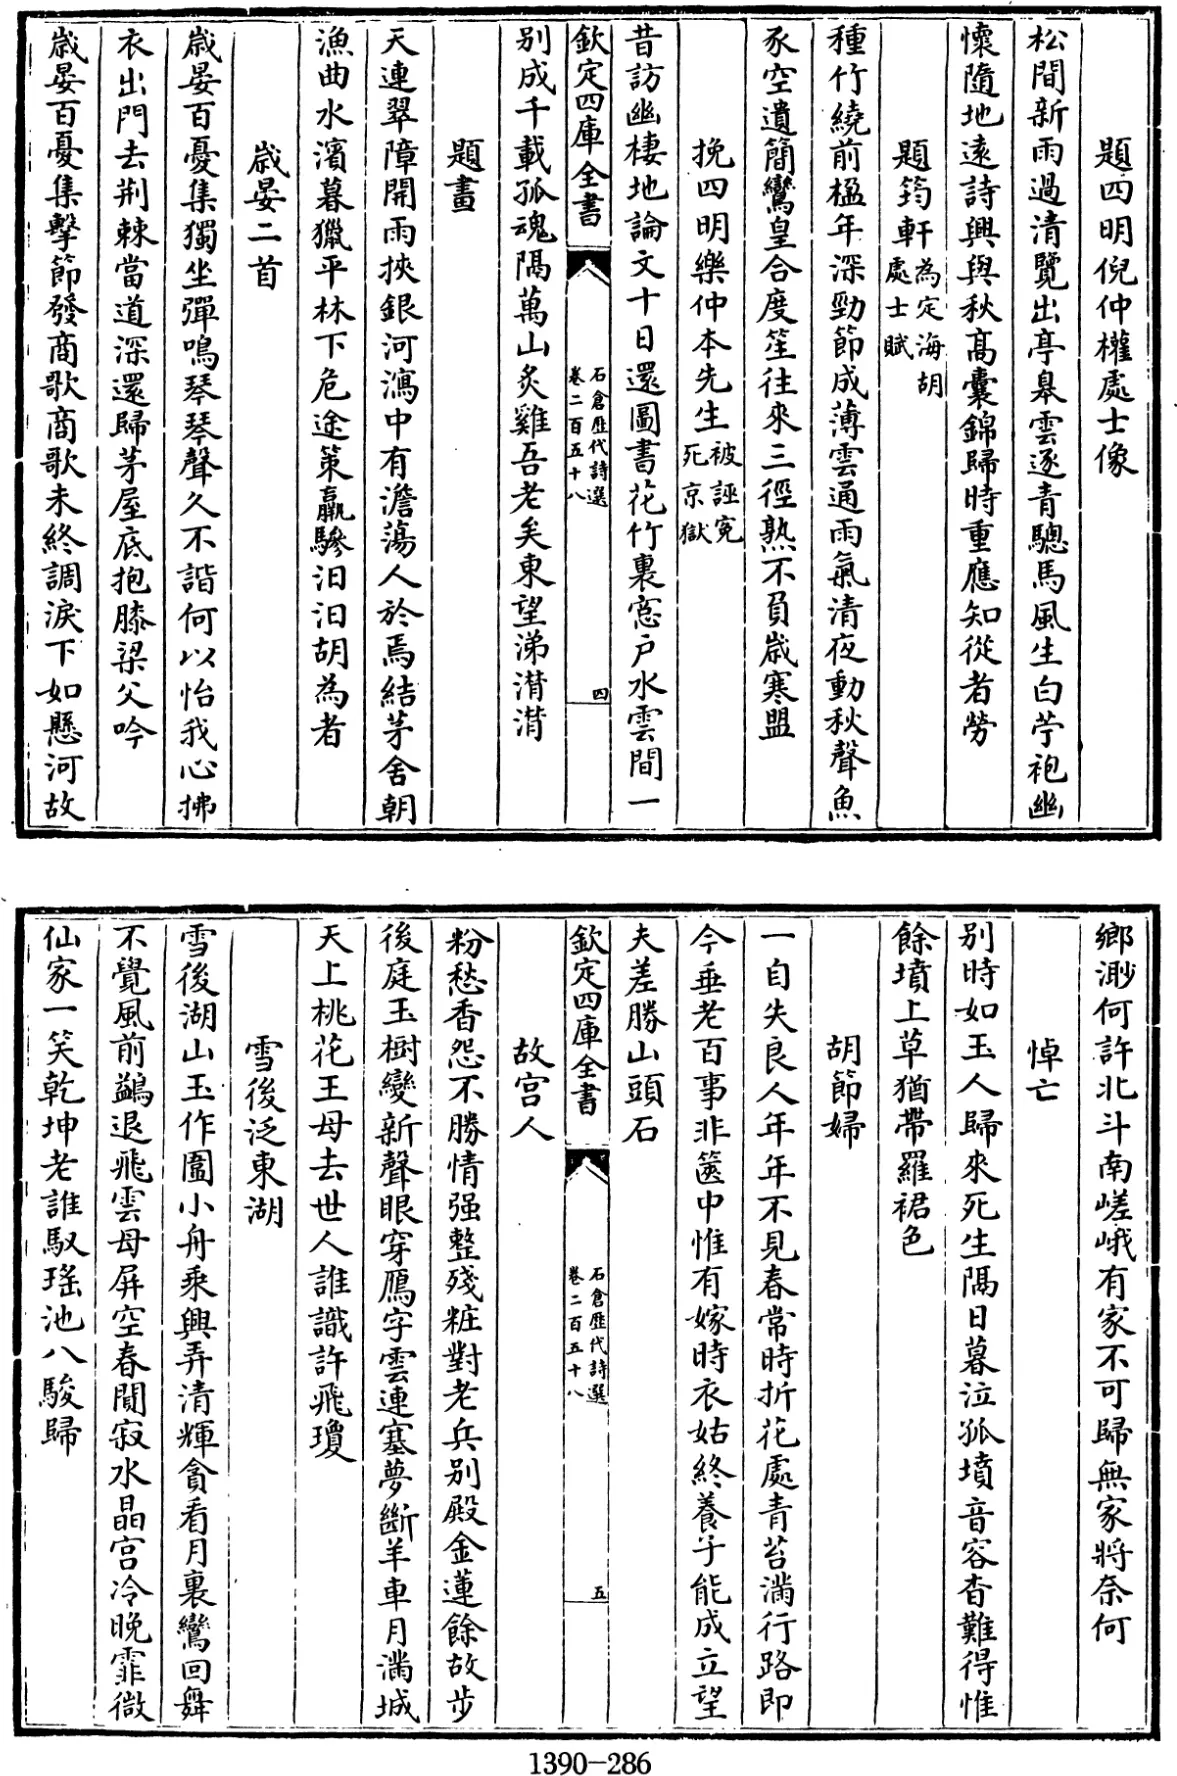 題四明倪仲權處士像
松間新雨過清覽出亭臯雲逐青驄馬風生白苧袍幽
懷隨地遠詩興與秋髙囊錦歸時重應知從者勞
題筠軒為定海胡處士賦
種竹繞前楹年深勁節成薄雲通雨氣清夜動秋聲魚
豕空遺簡鸞皇合度笙往來三徑熟不負嵗寒盟
挽四明樂仲本先生被誣寃死京獄
昔訪幽棲地論文十日還圖書花竹裏窓戶水雲間一
欽定四庫全書
石倉歴代詩選
卷二百五十八
四
别成千載孤魂隔萬山炙雞吾老矣東望涕潸潸
題畫
天連翠障開雨挾銀河瀉中有澹蕩人於焉結茅舍朝
漁曲水濱暮獵平林下危途策羸驂汨汨胡為者
嵗晏二首
嵗晏百憂集獨坐彈鳴琴琴聲久不諧何以怡我心拂
衣出門去荆棘當道深還歸茅屋底抱膝梁父吟
嵗晏百憂集擊節發商歌商歌未終調淚下如懸河故
鄉渺何許北斗南嵯峨有家不可歸無家將奈何
悼亡
别時如玉人歸來死生隔日暮泣孤墳音容杳難得惟
餘墳上草猶帶羅裙色
胡節婦
一自失良人年年不見春常時折花處青苔滿行路即
今垂老百事非篋中惟有嫁時衣姑終養子能成立望
夫差勝山頭石
欽定四庫全書
石倉歴代詩選
卷二百五十八
五
故宫人
粉愁香怨不勝情强整殘粧對老兵别殿金蓮餘故步
後庭玉樹變新聲眼穿鴈字雲連塞夢斷羊車月滿城
天上桃花王母去世人誰識許飛瓊
雪後泛東湖
雪後湖山玉作圍小舟乘興弄清輝貪看月裏鸞回舞
不覺風前鷁退飛雲母屏空春閴寂水晶宫冷晚霏微
仙家一笑乾坤老誰馭瑤池八駿歸
1390-286